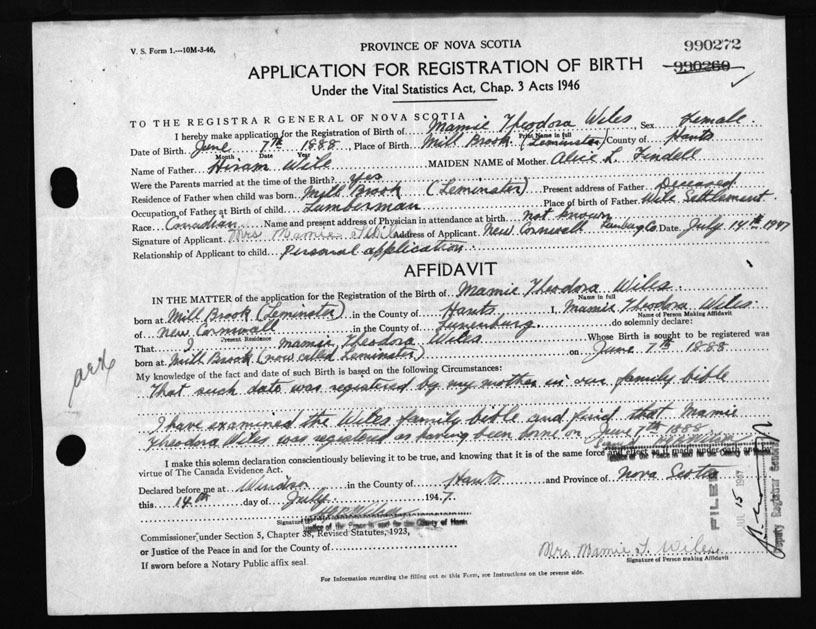 V. S. Form 1.—10M-3-46,
PROVINCE OF NOVA SCOTIA
990272
990260
APPLICATION FOR REGISTRATION OF BIRTH
Under the Vital Statistics Act, Chap. 3 Acts 1946
TO THE REGISTRAR GENERAL OF NOVA SCOTIA
I hereby make application for the Registration of Birth of Mamie Theodora Wiles, Sex Female
Print Name in full
Date of Birth June 7th 1888, Place of Birth Mill Brook (Leminster) County of Hants
Month Date Year
Name of Father Hiram Wile MAIDEN NAME of Mother Alice L.
Were the Parents married at the time of the Birth? yes
Residence of Father when child was born Mill Brook (Leminster) Present address of Father Deceased
Occupation of Father at Birth of child Lumberman Place of birth of Father Wile Settlement
Race Canadian Name and present address of Physician in attendance at birth not known
Signature of Applicant Mrs Mamie Address of Applicant New Cornwall Lunenburg Co. Date July 14th 1947
Relationship of Applicant to child Personal application.
AFFIDAVIT
IN THE MATTER of the application for the Registration of the Birth of Mamie Theodora Wiles.
Name in full
born at Mill Brook (Leminster) in the County of Hants I, Mamie Theodora Wiles.
Name of Person Making Affidavit
of New Cornwall in the County of Lunenburg do solemnly declare:
Present Residence
That I Mamie Theodora Wiles Whose Birth is sought to be registered was
born at Mill Brook (now called Leminster) on June 7th 1888
My knowledge of the fact and date of such Birth is based on the following Circumstances:
That such date was registered by my mother in our family bible
I have examined the Wiles family bible and find that Mamie
Theodora Wiles was registered as having been born on June 7th 1888
I make this solemn declaration conscientiously believing it to be true, and knowing that it is of the same force and effect as if made under oath and by
virtue of The Canada Evidence Act.
Declared before me at Windsor in the County of Hants and Province of Nova Scotia
this 14th day of July 1947.
Signature
Justice of the Peace in and for the County of Hants
Commissioner under Section 5, Chapter 38, Revised Statutes, 1923,
or Justice of the Peace in and for the County of
If sworn before a Notary Public affix seal.
Mrs. Mamie T. Wiles
Signature of Person making Affidavit
For Information regarding the filling out of this Form, see Instructions on the reverse side.
FILED
JUL 15 1947
Deputy Registrar General